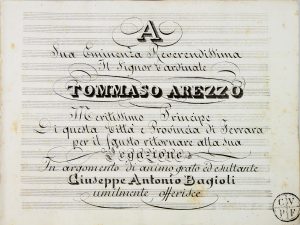 A
Sua Eminenza Reverendissima
Il Signor Cardinale
TOMMASO AREZZO
Meritissimo Principe
Di questa Città e Provincia di Ferrara
per il fausto ritornare alla sua
Legazione
In argomento di animo grato ed esultante
Giuseppe Antonio Bagioli
umilmente offerisce